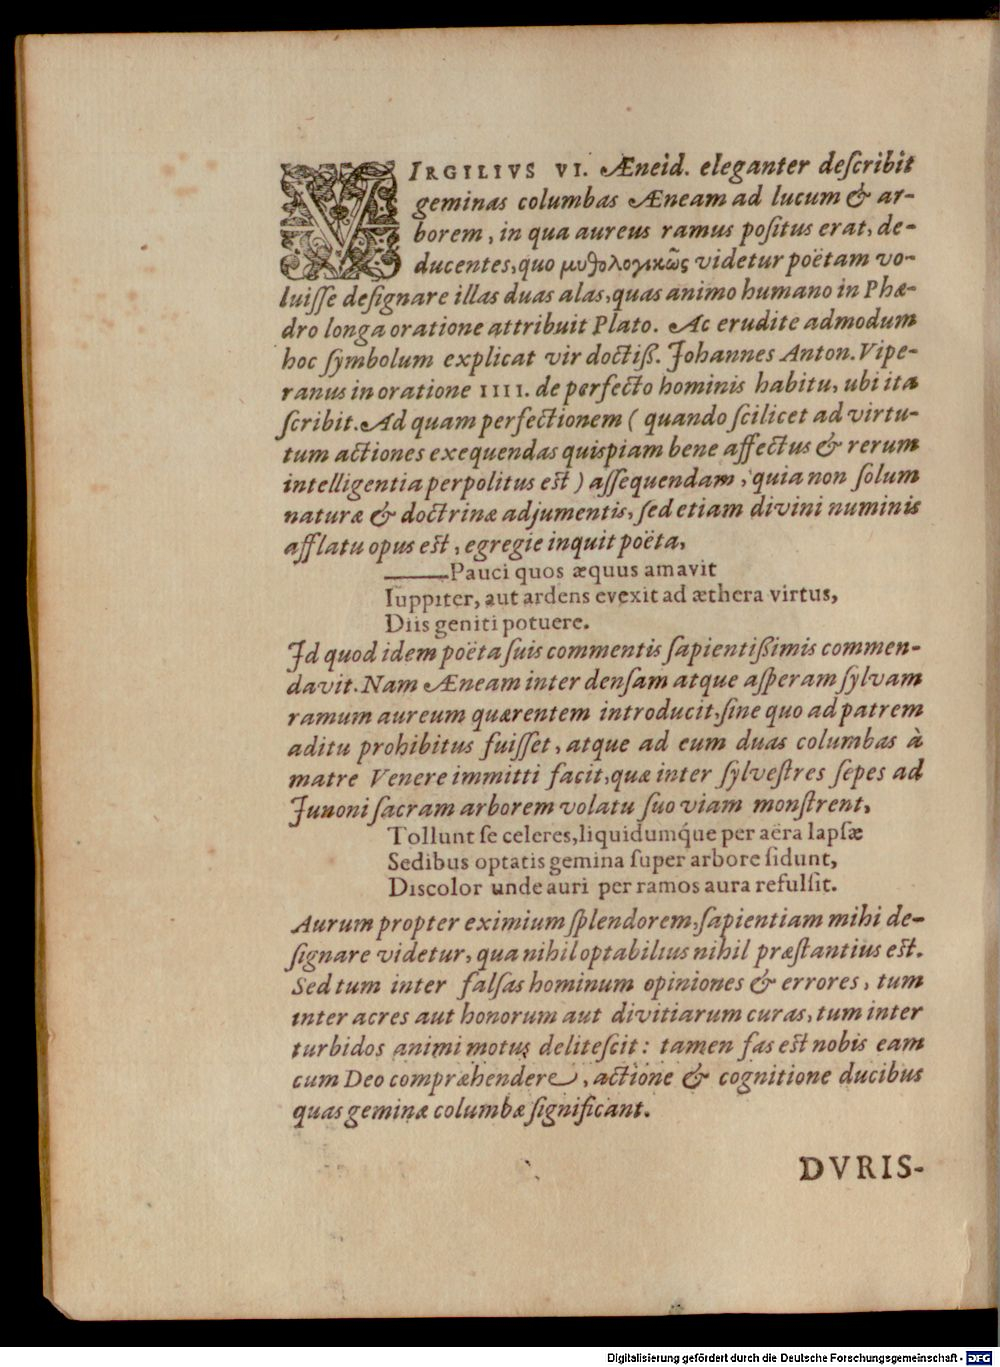 VIRGILIVS VI. Æneid. eleganter deſcribit
geminas columbas Æneam ad lucum & ar-
borem, in qua aureus ramus poſitus erat, de-
ducentes, quo μυθολογικῶς videtur poëtam vo-
luiſſe deſignare illas duas alas, quas animo humano in Phæ-
dro longa oratione attribuit Plato. Ac erudite admodum
hoc ſymbolum explicat vir doctiß. Johannes Anton. Vipe-
ranus in oratione IIII. de perfecto hominis habitu, ubi ita
ſcribit. Ad quam perfectionem (quando ſcilicet ad virtu-
tum actiones exequendas quispiam bene affectus & rerum
intelligentia perpolitus est) aſſequendam, quia non ſolum
naturæ & doctrinæ adjumentis, ſed etiam divini numinis
afflatu opus est, egregie inquit poëta,
——Pauci quos æquus amavit
Iuppiter, aut ardens evexit ad æthera virtus,
Diis geniti potuere.
Id quod idem poëta ſuis commentis ſapientißimis commen-
davit. Nam Æneam inter denſam atque aſperam ſylvam
ramum aureum quærentem introducit, ſine quo ad patrem
aditu prohibitus fuiſſet, atque ad eum duas columbas à
matre Venere immitti facit, quæ inter ſylveſtres ſepes ad
Junoni ſacram arborem volatu ſuo viam monſtrent,
Tollunt ſe celeres, liquidumq́ue per aëra lapſæ
Sedibus optatis gemina ſuper arbore ſidunt,
Discolor unde auri per ramos aura refulſit.
Aurum propter eximium ſplendorem, ſapientiam mihi de-
ſignare videtur, qua nihil optabilius nihil præſtantius est.
Sed tum inter falſas hominum opiniones & errores, tum
inter acres aut honorum aut divitiarum curas, tum inter
turbidos animi motus deliteſcit: tamen fas est nobis eam
cum Deo compræhendere, actione & cognitione ducibus
quas geminæ columbæ ſignificant.
DVRIS-
Digitalisierung gefördert durch die Deutsche Forschungsgemeinschaft - DFG